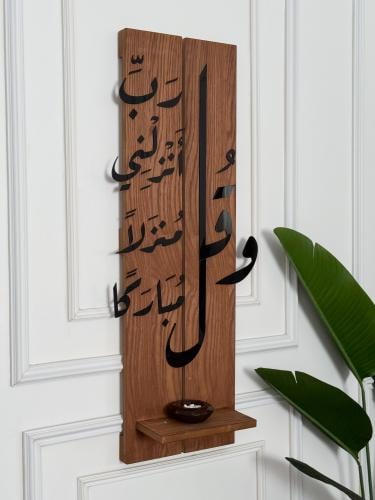 وَقُل
رَبِّ
أَنْزِلْنِي
مُنزَلاً
مُبَارَكًا